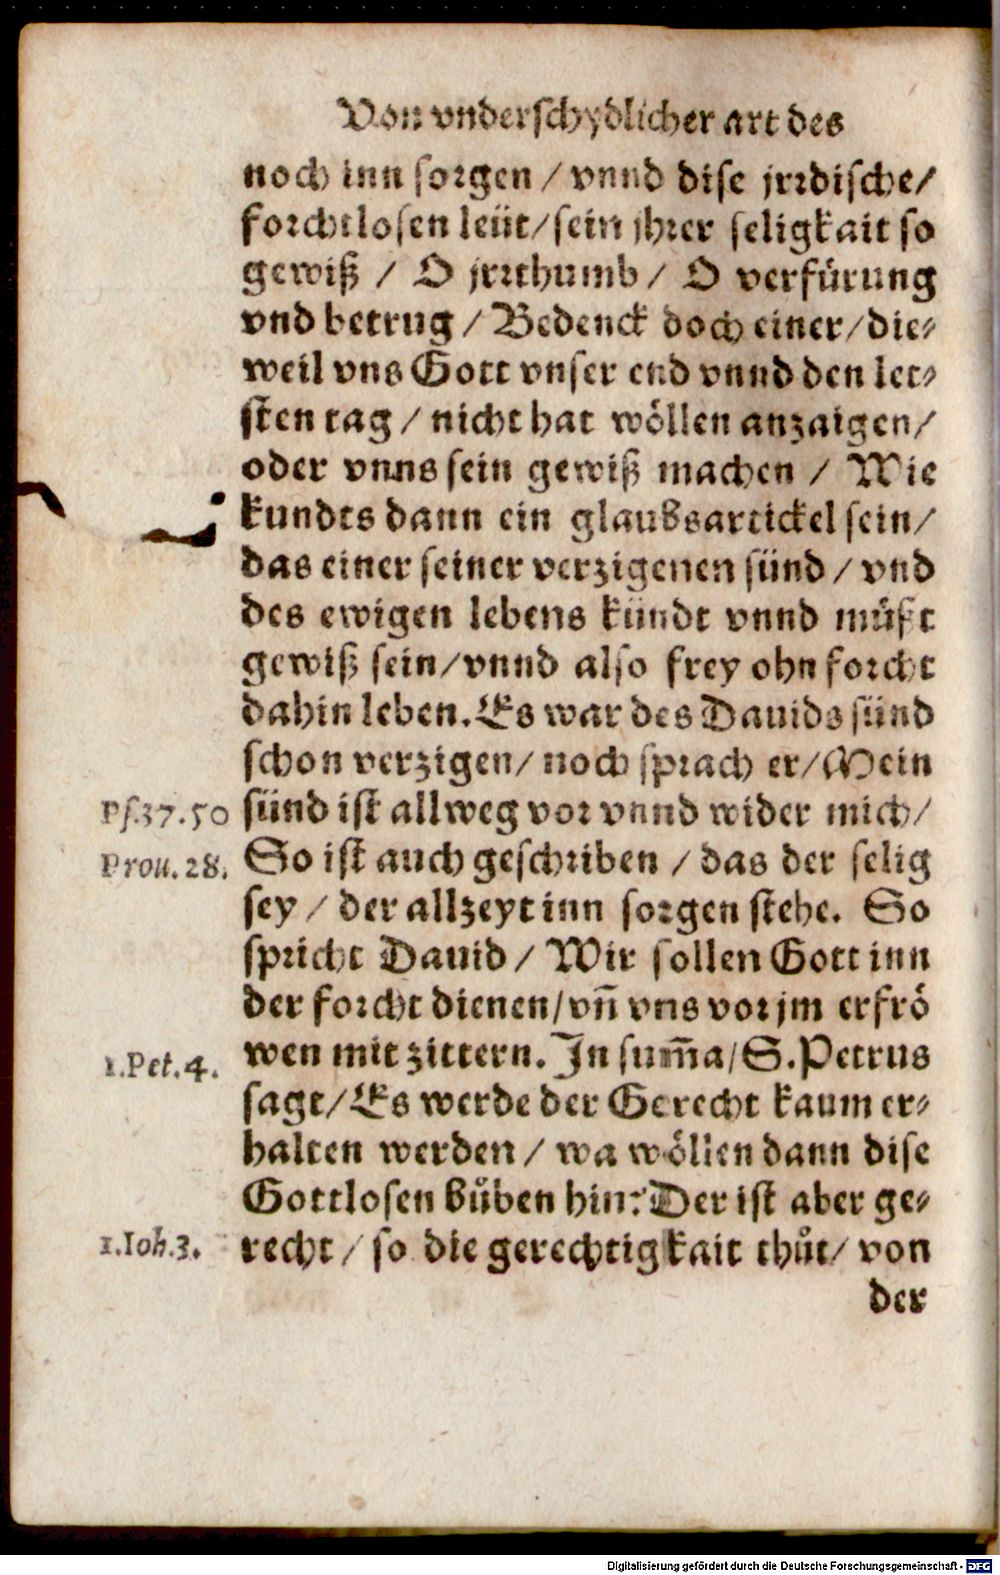 Von vnderschydlicher art des
noch inn sorgen / vnnd dise jrrdische/
forchtlosen leüt/sein jhrer seligkait so
gewiß / O jrrthumb / O verfürung
vnd betrug / Bedenck doch einer/die⸗
weil vns Gott vnser end vnnd den let⸗
sten tag / nicht hat wöllen anzaigen/
oder vnns sein gewiß machen / Wie
kundts dann ein glaubsartickel sein/
das einer seiner verzigenen sünd / vnd
des ewigen lebens kündt vnnd müßt
gewiß sein/vnnd also frey ohn forcht
dahin leben. Es war des Dauids sünd
schon verzigen/ noch sprach er/Mein
Ps.37.50 sünd ist allweg vor vnnd wider mich/
Prou.28. So ist auch geschriben / das der selig
sey / der allzeyt inn sorgen stehe. So
spricht Dauid / Wir sollen Gott inn
der forcht dienen/vn̄ vns vor jm erfrö
1.Pet.4. wen mit zittern. In sum̄a/S.Petrus
sagt/Es werde der Gerecht kaum er⸗
halten werden / wa wöllen dann dise
Gottlosen bůben hin? Der ist aber ge⸗
1.Ioh.3. recht / so die gerechtigkait thůt/ von
der
Digitalisierung gefördert durch die Deutsche Forschungsgemeinschaft - DFG